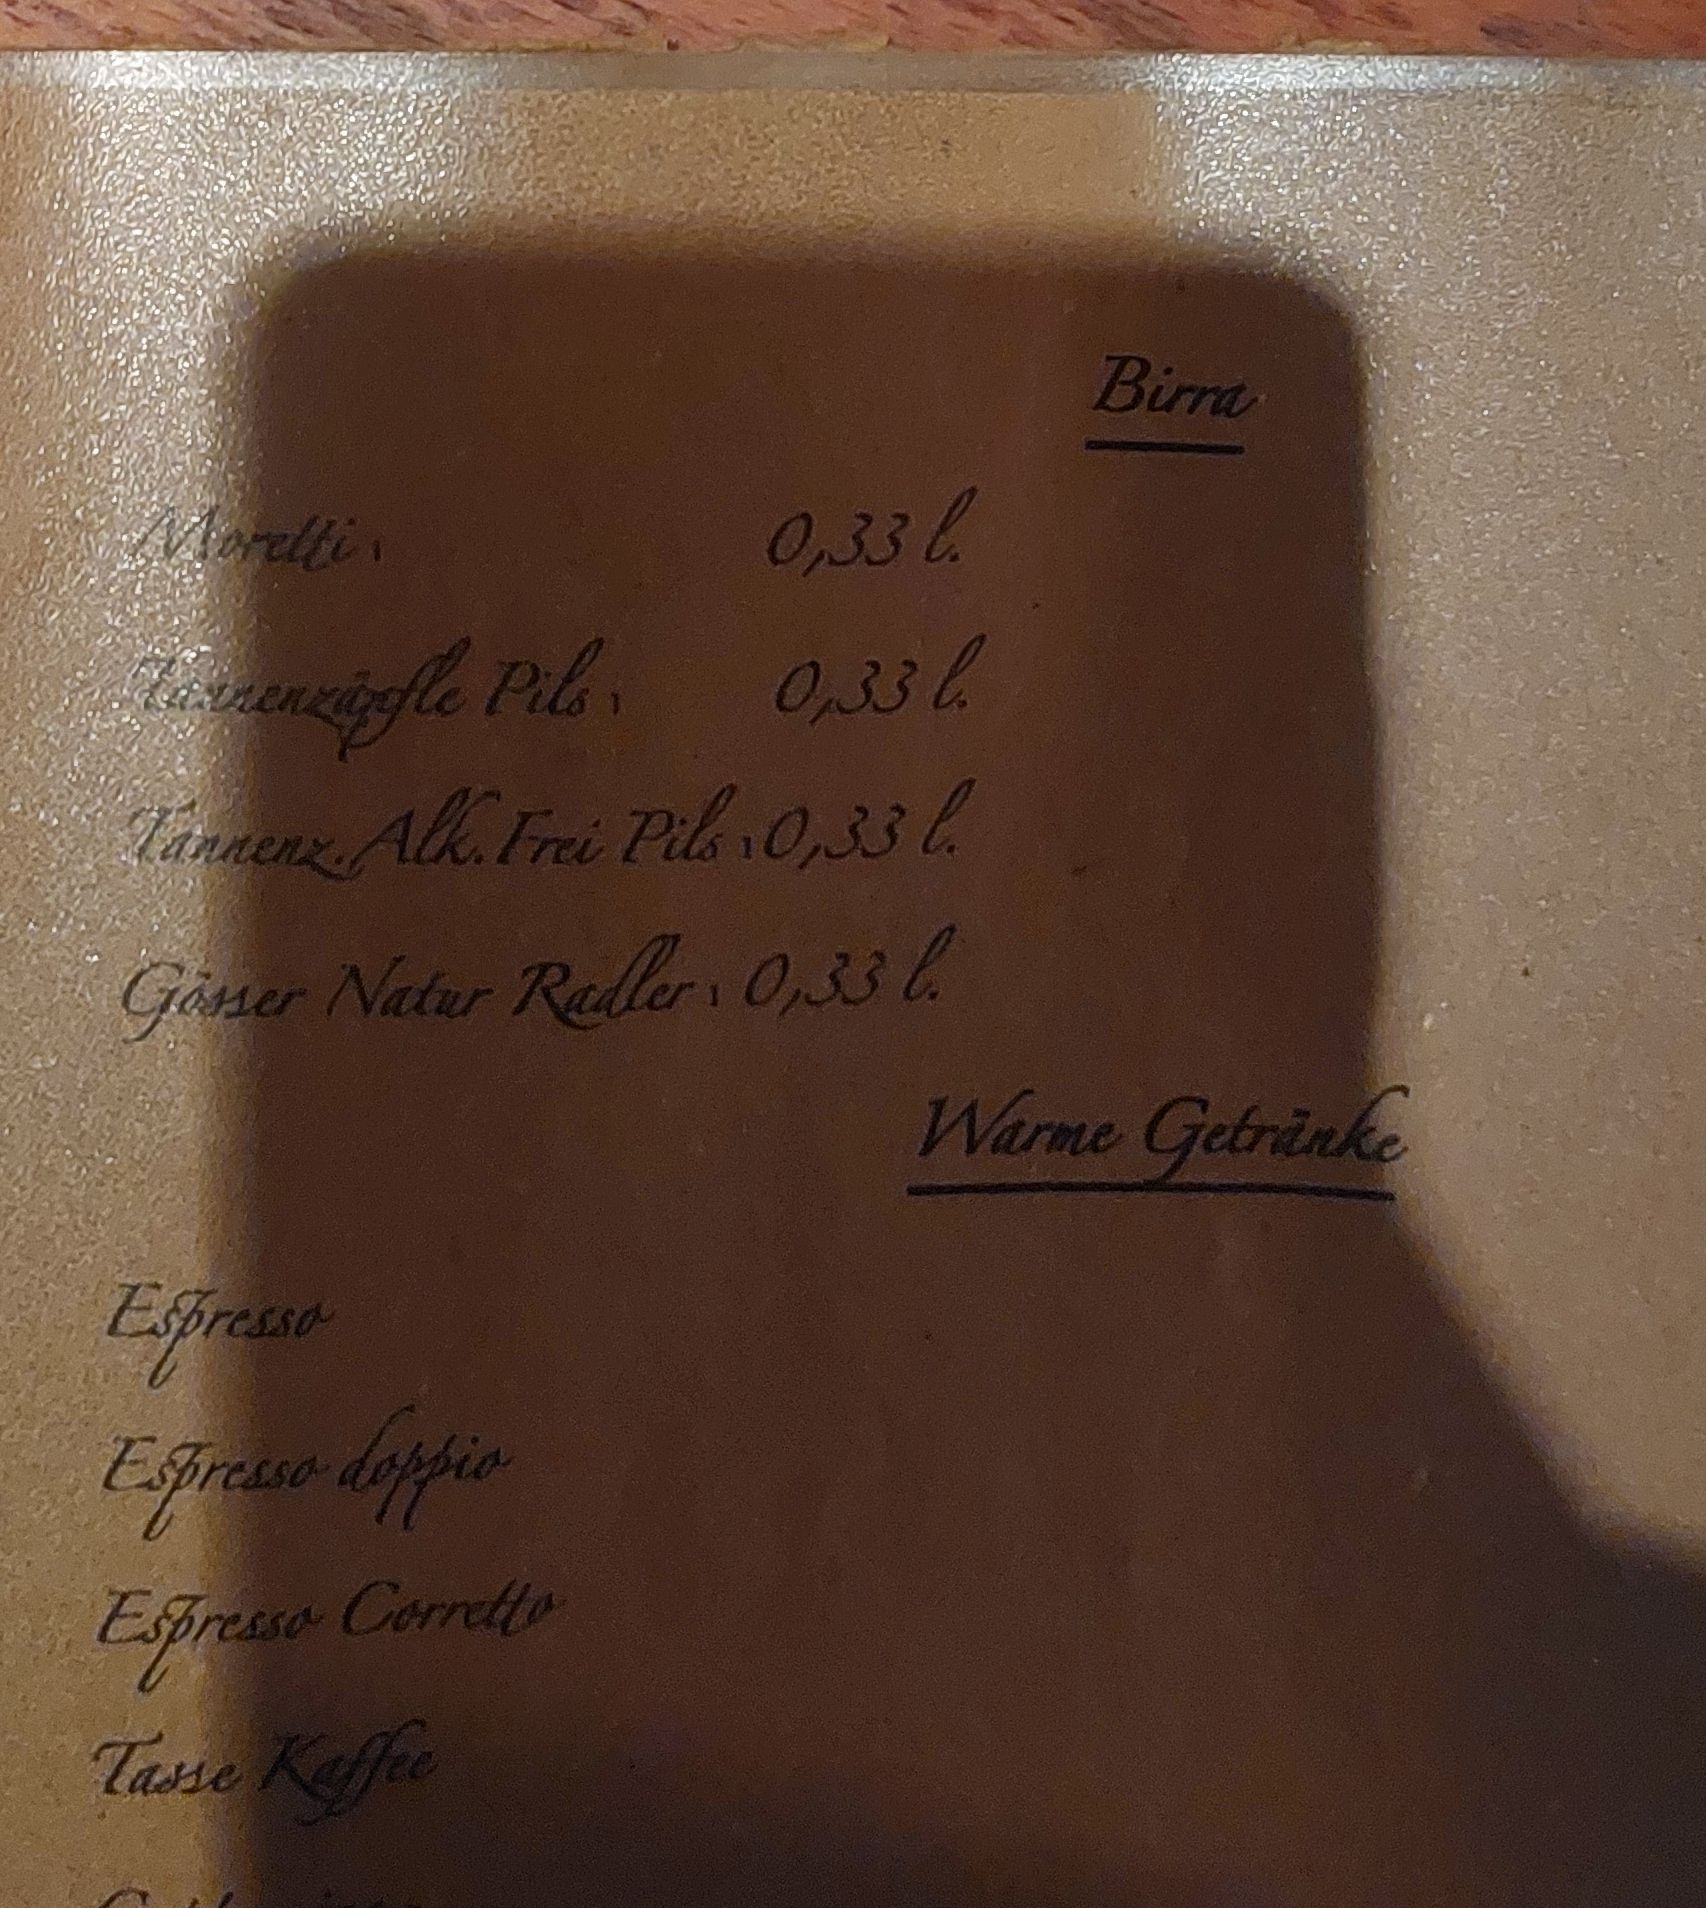 Birra
Moretti : 0,33 l.
Tannenzäpfle Pils : 0,33 l.
Tannenz. Alk. Frei Pils : 0,33 l.
Gösser Natur Radler : 0,33 l.
Warme Getränke
Espresso
Espresso doppio
Espresso Corretto
Tasse Kaffee